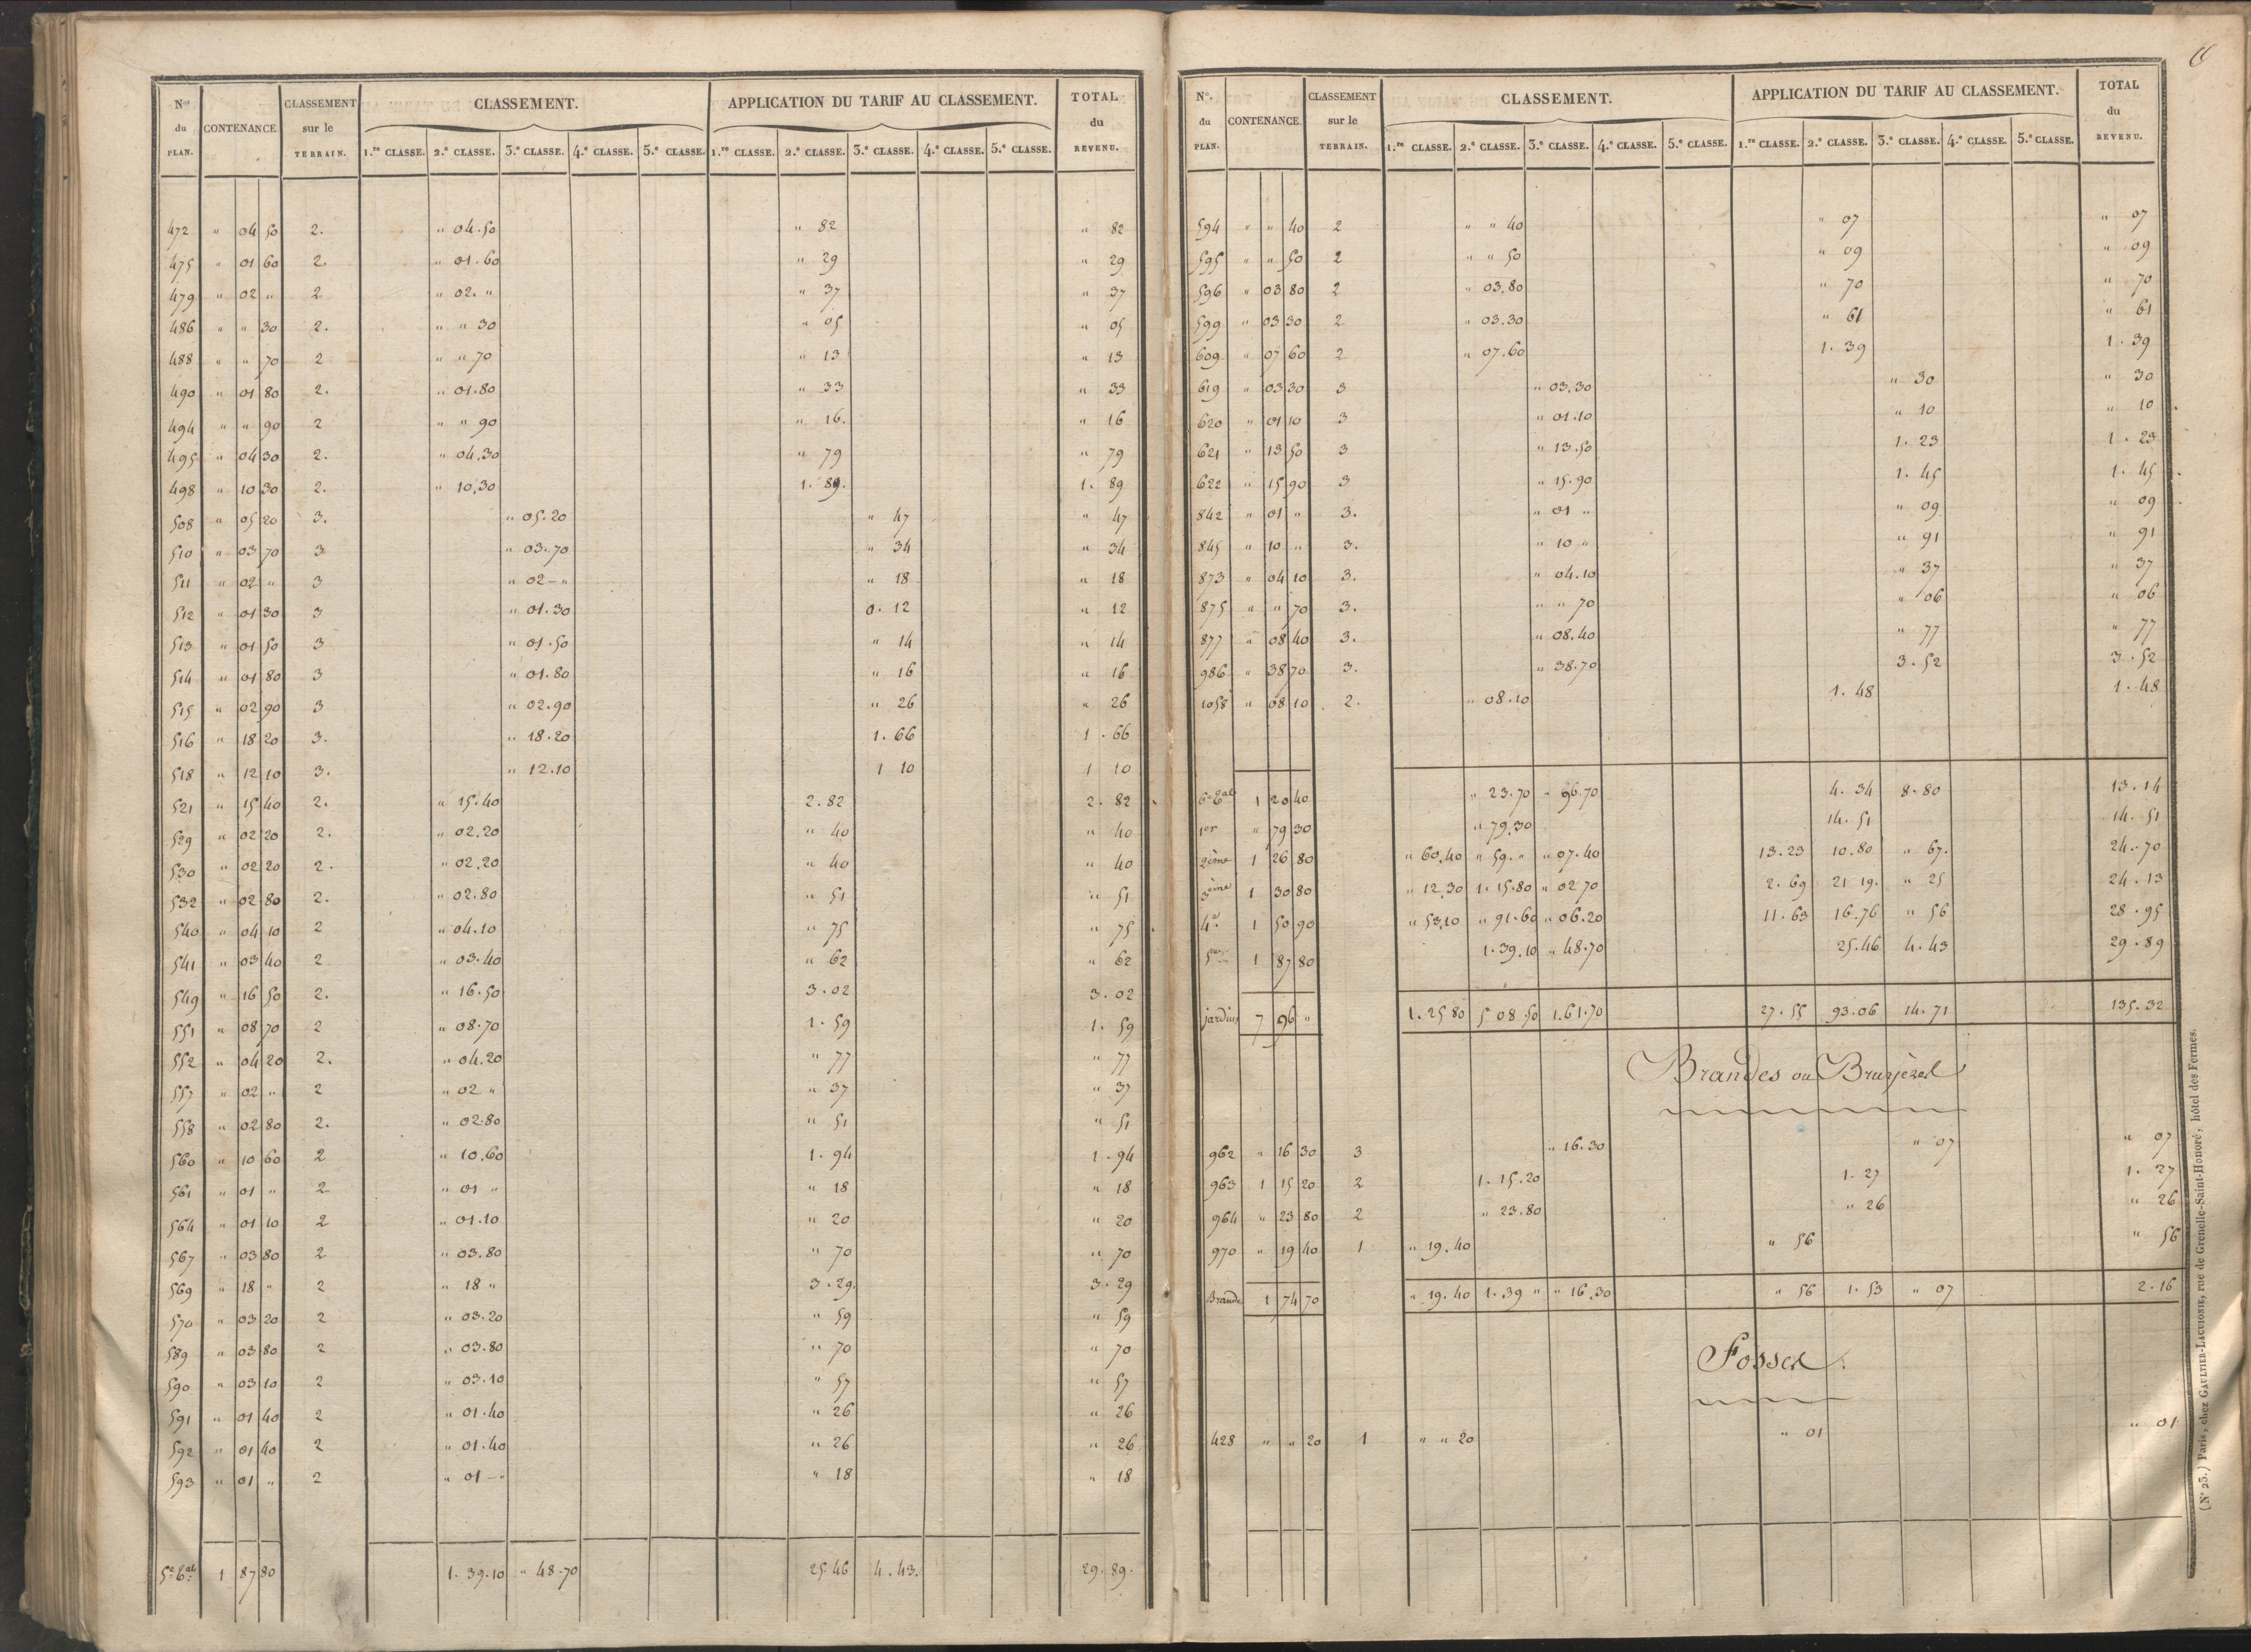 N.os du PLAN. CONTENANCE CLASSEMENT sur le TERRAIN. CLASSEMENT. APPLICATION DU TARIF AU CLASSEMENT. TOTAL du REVENU.
1.re CLASSE. 2.e CLASSE. 3.e CLASSE. 4.e CLASSE. 5.e CLASSE. 1.re CLASSE. 2.e CLASSE. 3.e CLASSE. 4.e CLASSE. 5.e CLASSE.
472 " 04 50 2. " 04.50 " 82 " 82
475 " 01 60 2. " 01.60 " 29 " 29
479 " 02 " 2 " 02. " " 37 " 37
486 " " 30 2. " " 30 " 05 " 05
488 " " 70 2 " " 70 " 13 " 13
490 " 01 80 2. " 01.80 " 33 " 33
494 " " 90 2 " " 90 " 16. " 16
495 " 04 30 2. " 04.30 " 79 " 79
498 " 10 30 2. " 10,30 1. 89. 1. 89
508 " 05 20 3. " 05.20 " 47 " 47
510 " 03 70 3 " 03.70 " 34 " 34
511 " 02 " 3 " 02 – " " 18 " 18
512 " 01 30 3 " 01.30 0. 12 " 12
513 " 01 50 3 " 01.50 " 14 " 14
514 " 01 80 3 " 01.80 " 16 " 16
515 " 02 90 3 " 02.90 " 26 " 26
516 " 18 20 3. " 18.20 1. 66 1. 66
518 " 12 10 3. " 12.10 1 10 1 10
521 " 15 40 2. " 15.40 2.82 2. 82
529 " 02 20 2. " 02.20 " 40 " 40
530 " 02 20 2. " 02,20 " 40 " 40
532 " 02 80 2. " 02.80 " 51 " 51
540 " 04 10 2 " 04.10 " 75 " 75
541 " 03 40 2 " 03.40 " 62 " 62
549 " 16 50 2. " 16.50 3.02 3.02
551 " 08 70 2 " 08.70 1. 59 1. 59
552 " 04 20 2. " 04.20 " 77 " 77
557 " 02 " 2 " 02 " " 37 " 37
558 " 02 80 2. " 02.80 " 51 " 51
560 " 10 60 2 " 10.60 1. 94 1. 94
561 " 01 " 2 " 01 " " 18 " 18
564 " 01 10 2 " 01.10 " 20 " 20
567 " 03 80 2 " 03.80 " 70 " 70
569 " 18 " 2 " 18 " 3. 29. 3. 29
570 " 03 20 2 " 03.20 " 59 " 59
589 " 03 80 2 " 03.80 " 70 " 70
590 " 03 10 2 " 03.10 " 57 " 57
591 " 01 40 2 " 01.40 " 26 " 26
592 " 01 40 2 " 01.40 " 26 " 26
593 " 01 " 2 " 01 – " " 18 " 18
1 87 80 1. 39.10 " 48.70 25.46 4.43. 29. 89.
N.os du PLAN. CONTENANCE CLASSEMENT sur le TERRAIN. CLASSEMENT. APPLICATION DU TARIF AU CLASSEMENT. TOTAL du REVENU.
1.re CLASSE. 2.e CLASSE. 3.e CLASSE. 4.e CLASSE. 5.e CLASSE. 1.re CLASSE. 2.e CLASSE. 3.e CLASSE. 4.e CLASSE. 5.e CLASSE.
594 " " 40 2 " " 40 " 07 " 07
595 " " 50 2 " " 50 " 09 " 09
596 " 03 80 2 " 03.80 " 70 " 70
599 " 03 30 2 " 03.30 " 61 " 61
609 " 07 60 2 " 07.60 1. 39 1. 39
619 " 03 30 3 " 03.30 " 30 " 30
620 " 01 10 3 " 01.10 " 10 " 10
621 " 13 50 3 " 13.50 1. 23 1. 23
622 " 15 90 3 " 15.90 1. 45 1. 45
842 " 01 " 3. " 01 " " 09 " 09
845 " 10 " 3. " 10 " " 91 " 91
873 " 04 10 3. " 04.10 " 37 " 37
875 " " 70 3. " " 70 " 06 " 06
877 " 08 40 3. " 08.40 " 77 " 77
986 " 38 70 3. " 38.70 3. 52 3. 52
1058 " 08 10 2. " 08.10 1. 48 1. 48
1 20 40 " 23.70 " 96.70 4. 34 8.80 13.14
1er " 79 30 " 79.30 14. 51 14. 51
2ème 1 26 80 " 60.40 " 59. " " 07.40 13.23 10.80 " 67. 24.70
3ème 1 30 80 " 12.30 1. 15.80 " 02 70 2. 69 21 19. " 25 24. 13
4e 1 50 90 " 53,10 " 91.60 " 06.20 11.63 16.76 " 56 28.95
1 87 80 1.39.10 " 48.70 25.46 4.43 29.89
jardins 7 96 " 1.25 80 5 08.50 1.61.70 27.55 93.06 14.71 135.32
Brandes ou Bruyères
962 " 16 30 3 " 16.30 " 07 " 07
963 1 15 20 2 1. 15.20 1. 27 1. 27
964 " 23 80 2 " 23.80 " 26 " 26
970 " 19 40 1 " 19.40 " 56 " 56
Brande 1 74 70 " 19.40 1.39 " " 16.30 " 56 1. 53 " 07 2.16
Fosses.
428 " " 20 1 " " 20 " 01 " 01
(N° 23.) Paris, chez GAULTIER-LAGUIONIE, rue de Grenelle-Saint-Honoré, hôtel des Fermes.